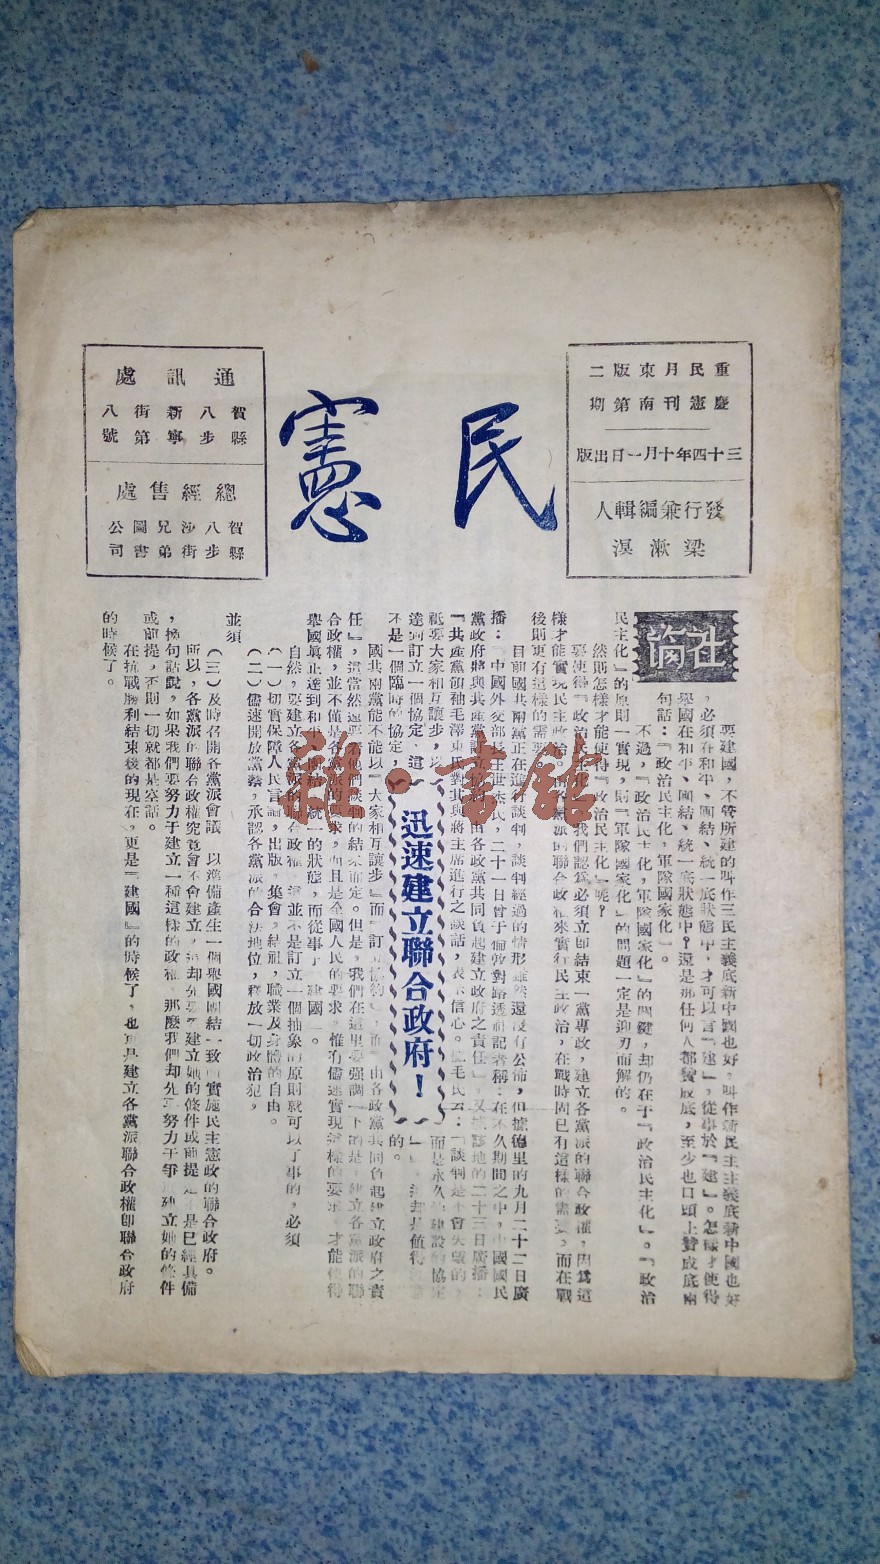 民憲
重慶
民憲
月刊
東南
版第
二期
三十四年十月一日出版
發行兼編輯人
梁漱溟
通訊處
賀縣
八步
新寧
街第
八號
總經售處
賀縣
八步
沙街
兄弟
圖書
公司
社論
迅速建立聯合政府！
要建國，不管所建的叫作三民主義底新中國也好，叫作新民主主義底新中國也好
，必須在和平、團結、統一底狀態中，才可以言『建』，從事於『建』。怎樣才使得
舉國在和平、團結、統一底狀態中？還是那任何人都贊成底，至少也口頭上贊成底兩
句話：『政治民主化，軍隊國家化』。
不過，『政治民主化，軍隊國家化』的關鍵，却仍在于『政治民主化』。『政治
民主化』的原則一實現，則『軍隊國家化』的問題一定是迎刃而解的。
然則怎樣才能使得『政治民主化』呢？
要使得『政治民主化』，我們認爲必須立即結束一黨專政，建立各黨派的聯合政權，因爲這
樣才能實現民主政治，由各黨派的聯合政權來實行民主政治，在戰時固已有這樣的需要，而在戰
後則更有這樣的需要。
目前國共兩黨正在進行談判，談判經過的情形雖然還沒有公佈，但據德里的九月二十二日廣
播：『中國外交部長王世杰氏，二十一日曾于倫敦對路透社記者稱：在不久期間之中，中國國民
黨政府將與共產黨訂立協約，由各政黨共同負起建立政府之責任』，又據該地的二十三日廣播：
『共產黨領袖毛澤東氏對其與蔣主席進行之談話，表示信心。毛氏云：『談判是不會失望的，
祇要大家相互讓步，以
達到訂立一個協定，這
不是一個臨時的協定，
而是永久的建設的協定
』』，這却是值得
的。
國共兩黨能不能以『大家相互讓步』而『訂立協約』，而『由各政黨共同負起建立政府之責
任』，這當然還要看他們談判的結果而定。但是，我們在這里要強調一下的是，建立各黨派的聯
合政權，並不僅是各黨派的要求，而且是全國人民的要求，惟有儘速實現這樣的要求，才能使得
舉國真正達到和平、團結、統一的狀態，而從事于『建國』。
自然，要建立各黨派的聯合政權，這並不是訂立一個抽象的原則就可以了事的，必須
（一）切實保障人民言論，出版，集會，結社，職業及身體的自由。
（二）儘速開放黨禁，承認各黨派的合法地位，釋放一切政治犯，
並須
（三）及時召開各黨派會議，以準備產生一個舉國團結一致而實施民主憲政的聯合政府。
所以，各黨派的聯合政權究竟會不會建立，這却先要看建立她的條件或前提是不是已經具備
，換句話說，如果我們要努力于建立一種這樣的政權，那麼我們却先要努力于爭取建立她的條件
或前提，否則一切就都是空話。
在抗戰勝利結束後的現在，更是『建國』的時候了，也更是建立各黨派聯合政權卽聯合政府
的時候了。
雜·書館